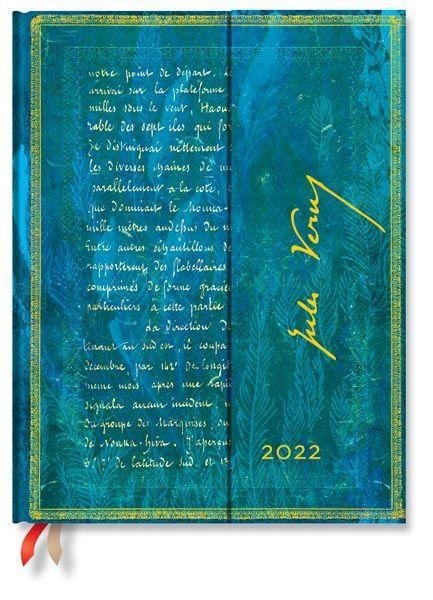 notre point de départ. Le
arrivai sur la plateforme
milles sous le vent, Haou
rable des sept îles qui for
Je distinguai nettement
les diverses chaînes de m
parallèlement à la côte,
que dominait le Mouna-
mille mètres au dessus du ni
Entre autres échantillons de
rapportèrent des flabellaires
comprimés de forme gracieu
particuliers à cette partie
La direction du
tenant au sud est, il coupa
décembre, par 142° de longit
même mois après une rapi
signala aucun incident,
du groupe des Marquises,
de Nouka-Hiva. J'aperçus
de latitude sud, et 13
Jules Verne
2022